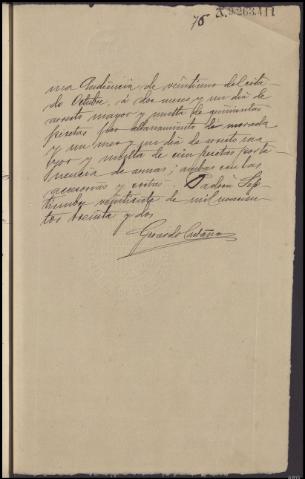 75 A.9263411
ma Audiencia de veintiuno del cita
do Octubre, á dos meses y un dia de
arresto mayor y multa de quinientas
pesetas por allanamiento de morada
y un mes y un dia de arresto ma
yor y multa de cien pesetas por te
nencia de armas; ambas con las
accesorias y costas. Dado en Sep
tiembre veintisiete de mil novecien
tos treinta y dos
Gerardo